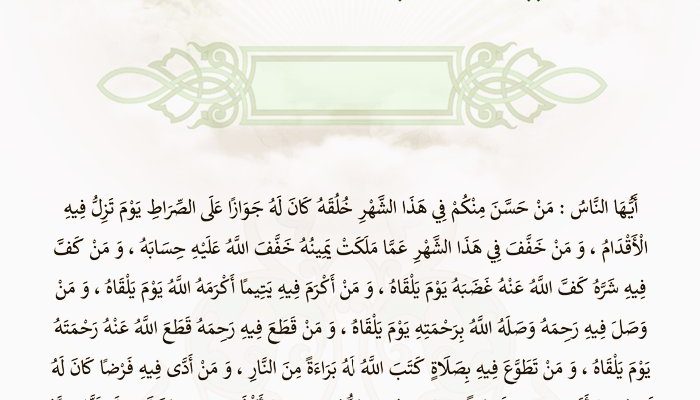 أَيُّهَا النَّاسُ : مَنْ حَسَّنَ مِنْكُمْ فِي هَذَا الشَّهْرِ خُلُقَهُ كَانَ لَهُ جَوَازًا عَلَى الصِّرَاطِ يَوْمَ تَزِلُّ فِيهِ
الْأَقْدَامُ ، وَ مَنْ خَفَّفَ فِي هَذَا الشَّهْرِ عَمَّا مَلَكَتْ يَمِينُهُ خَفَّفَ اللَّهُ عَلَيْهِ حِسَابَهُ ، وَ مَنْ كَفَّ
فِيهِ شَرَّهُ كَفَّ اللَّهُ عَنْهُ غَضَبَهُ يَوْمَ يَلْقَاهُ ، وَ مَنْ أَكْرَمَ فِيهِ يَتِيمًا أَكْرَمَهُ اللَّهُ يَوْمَ يَلْقَاهُ ، وَ مَنْ
وَصَلَ فِيهِ رَحِمَهُ وَصَلَهُ اللَّهُ بِرَحْمَتِهِ يَوْمَ يَلْقَاهُ ، وَ مَنْ قَطَعَ فِيهِ رَحِمَهُ قَطَعَ اللَّهُ عَنْهُ رَحْمَتَهُ
يَوْمَ يَلْقَاهُ ، وَ مَنْ تَطَوَّعَ فِيهِ بِصَلَاةٍ كَتَبَ اللَّهُ لَهُ بَرَاءَةً مِنَ النَّارِ ، وَ مَنْ أَدَّى فِيهِ فَرْضًا كَانَ لَهُ